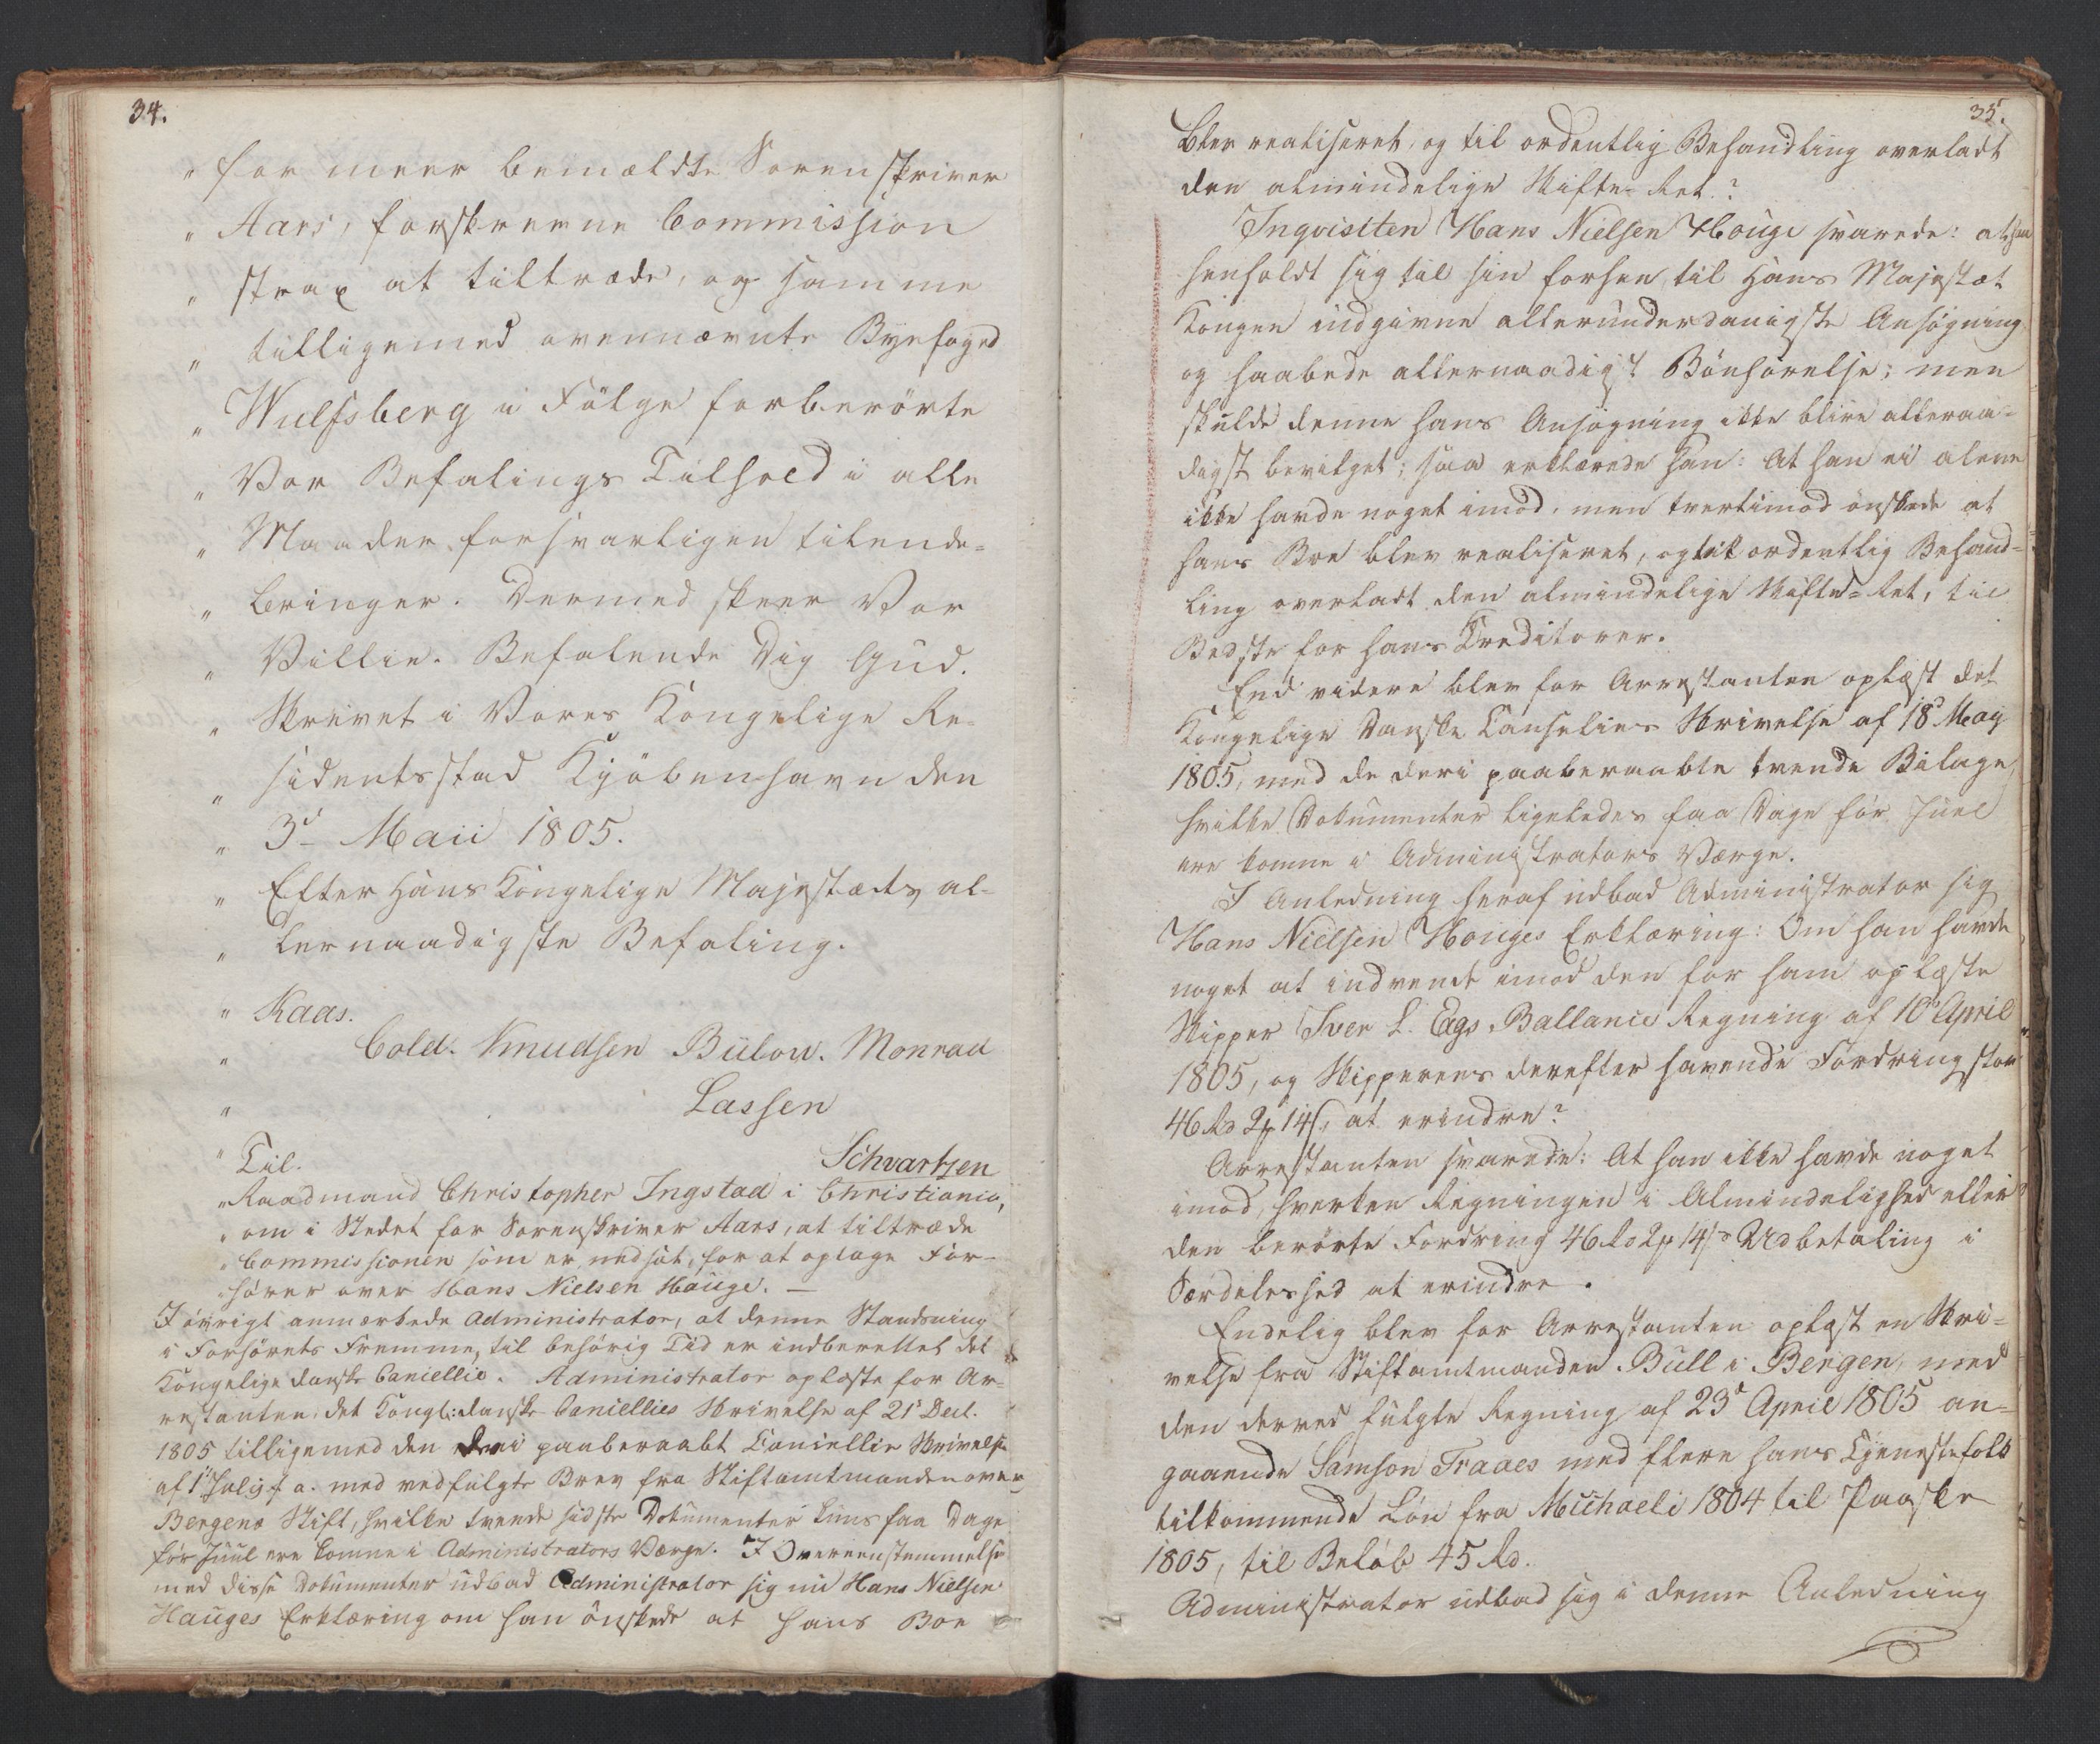 34.
" for meer bemældte Sorenskriver
" Aars, forskrevne Commission
" strax at tiltræde, og samme
" tilligemed ovennævnte Byefoged
" Wulfsberg i Fölge forberörte
" Vor Befalings Tilhold i alle
" Maader forsvarligen tilende-
" bringer. Dermed skeer Vor
" Villie. Befalende Dig Gud.
" Skrevet i Vores Kongelige Re-
" sidentsstad Kjöbenhavn den
" 3d Maii 1805.
" Efter Hans Kongelige Majestæts al-
" lernaadigste Befaling.
" Kaas.
" Cold. Knudsen Bülow. Monrad
" Lassen
" Til. Schvartzen
" Raadmand Christopher Ingstad i Christiania,
" om i Stedet for Sorenskriver Aars, at tiltræde
" Commissionen som er nedsat, for at optage For-
" hörer over Hans Nielsen Hauge. —
I övrigt anmærkede Administrator, at denne Standsning
i Forhörets Fremme, til behörig Tid er indberettet det
Kongelige danske Cancellie. Administrator oplæste for Ar-
restanten det Kongl: danske Cancellies Skrivelse af 21d Decl.
1805 tilligemed den deri paaberaabt Cancellie Skrivelse
af 1d July f. a. med vedfulgte Brev fra Stiftamtmanden over
Bergens Stift, hvilke tvende sidste Dokumenter kuns faa Dage
för Juul ere komne i Administrators Værge. I Overeensstemmelse
med disse Dokumenter udbad Administrator sig nu Hans Nielsen
Hauges Erklæring om han önskede at hans Boe
35.
blev realiseret, og til ordentlig Behandling overladt
den almindelige Skifte-Ret?
Inqvisiten Hans Nielsen Houge svarede: at han
henholdt sig til sin forhen til Hans Majestæt
Kongen indgivne allerunderdanigste Ansögning
og haabede allernaadigst Bönhörelse; men
skulde denne hans Ansögning ikke blive allernaa-
digst bevilget; saa erklærede han: At han ei alene
ikke havde noget imod, men tvertimod önskede at
hans Boe blev realiseret, og til ordentlig Behand-
ling overladt den almindelige Skifte-Ret, til
Bedste for hans Creditorer.
End videre blev for Arrestanten oplæst det
Kongelige Danske Cancelies Skrivelse af 18d May
1805, med de deri paaberaabte tvende Bilage
hvilke Dokumenter ligeledes faa Dage för Juel
ere komne i Administrators Værge.
I Anledning heraf udbad Administrator sig
Hans Nielsen Houges Erklæring: Om han havde
noget at indvende imod den for ham oplæste
Skipper Iver L. Eegs Ballance Regning af 10d April
1805, og Skipperens derefter havende Fordring stor
46 Rd 2 14 s, at erindre?
Arrestanten svarede: At han ikke havde noget
imod, hverken Regningen i Almindelighed eller
den berörte Fordring 46 Rd 2 14 s Udbetaling i
Særdeleshed at erindre.
Endelig blev for Arrestanten oplæst en Skri-
velse fra Stiftamtmanden Bull i Bergen, med
den derved fulgte Regning af 23d April 1805 an-
gaaende Samson Traaes med flere hans Tjenestefolk
tilkommende Lön fra Michaeli 1804 til Paaske
1805, til Belöb 45 Rd.
Administrator udbad sig i denne Anledning